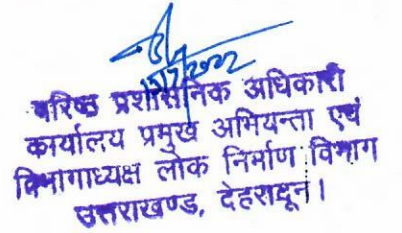 15/7/2022
वरिष्ठ प्रशासनिक अधिकारी
कार्यालय प्रमुख अभियन्ता एवं
विभागाध्यक्ष लोक निर्माण विभाग
उत्तराखण्ड, देहरादून।